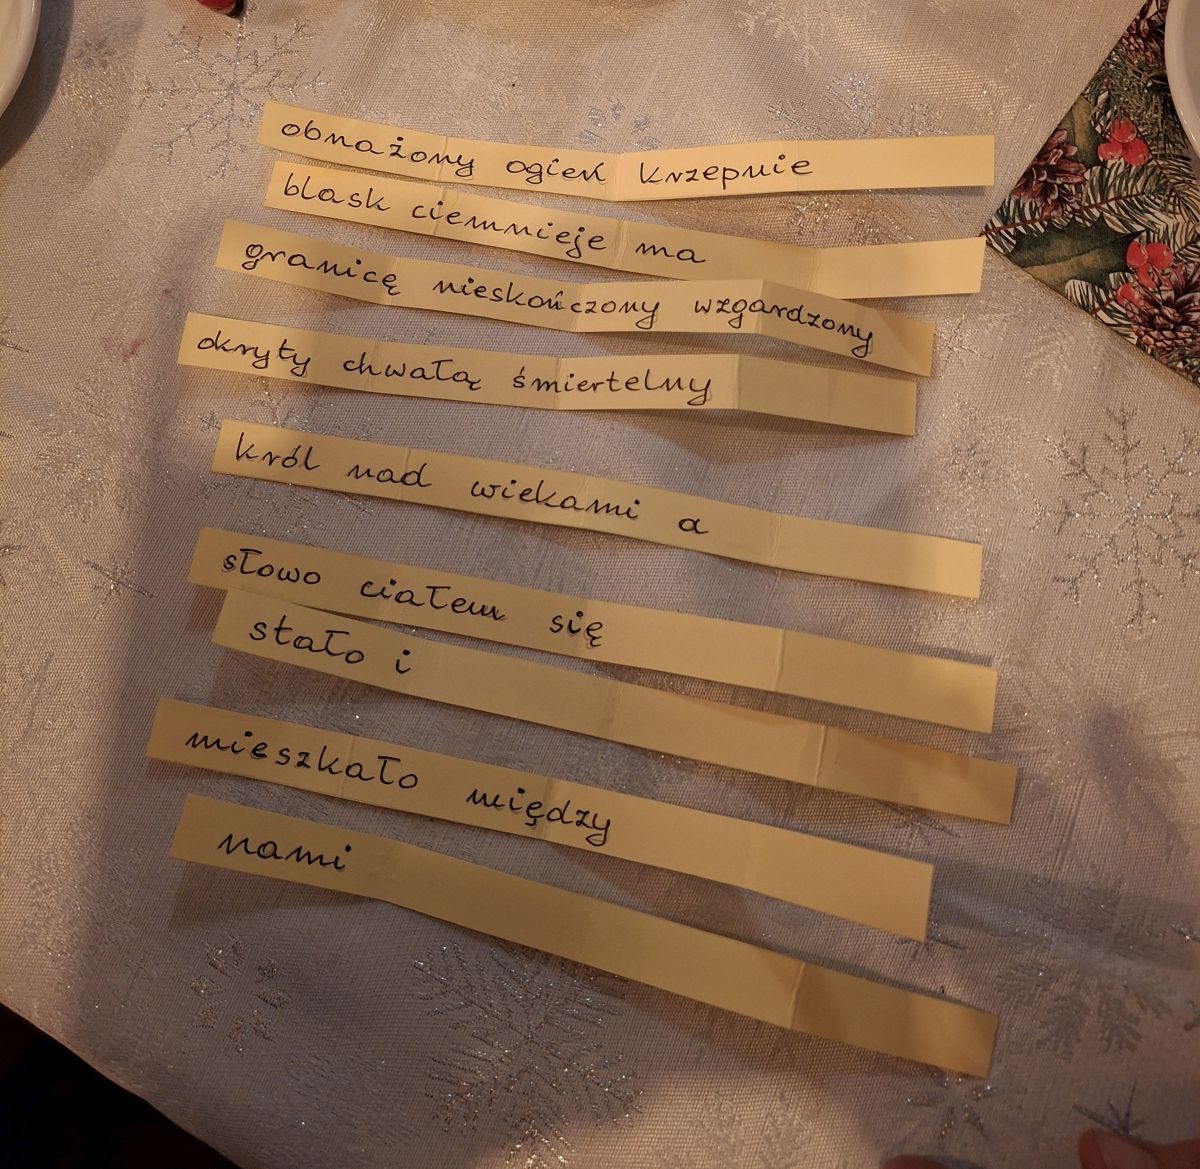 obnażony ogień krzepnie
blask ciemnieje ma
granicę nieskończony wzgardzony
okryty chwałą śmiertelny
król nad wiekami a
słowo ciałem się
stało i
mieszkało między
nami